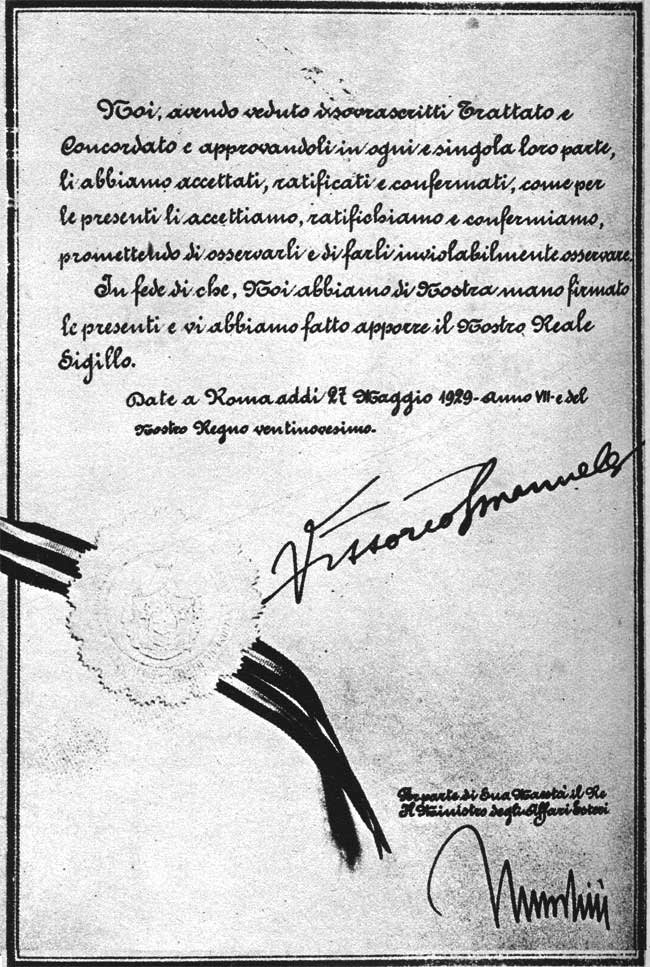 Noi, avendo veduto i sovrascritti Trattato e
Concordato e approvandoli in ogni e singola loro parte,
li abbiamo accettati, ratificati e confermati, come per
le presenti li accettiamo, ratifichiamo e confermiamo,
promettendo di osservarli e di farli inviolabilmente osservare.
In fede di che, Noi abbiamo di Nostra mano firmato
le presenti e vi abbiamo fatto apporre il Nostro Reale
Sigillo.
Date a Roma addì 27 Maggio 1929-Anno VII-e del
Nostro Regno ventinovesimo.
Vittorio Emanuele
Per parte di Sua Maestà il Re
Il Ministro degli Affari Esteri
Mussolini